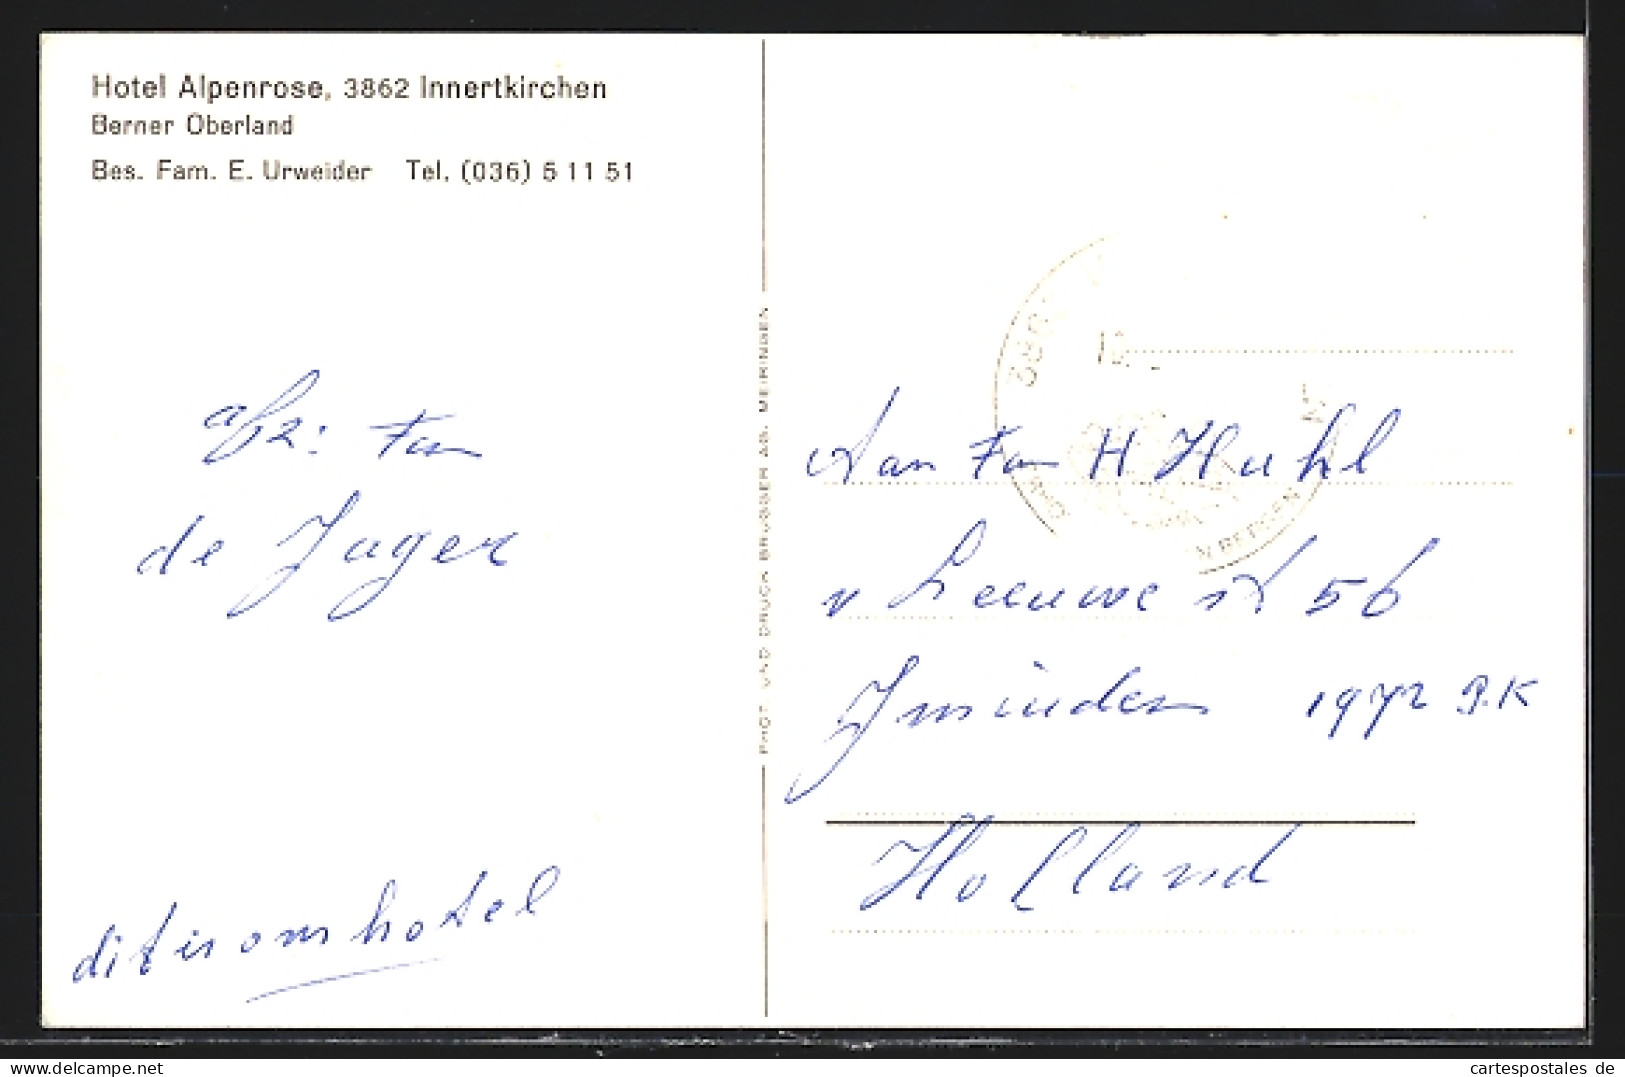 Hotel Alpenrose, 3862 Innertkirchen
Berner Oberland
Bes. Fam. E. Urweider Tel. (036) 5 11 51
afz: Fam
de Jager
dit is ons hotel
PHOT. UND DRUCK BRÜGGER AG. MEIRINGEN
Aan Fam H Huhl
v Leeuwe st 56
IJmuiden 1972 P.K
Holland
www.cartespostales.de
cartespostales de